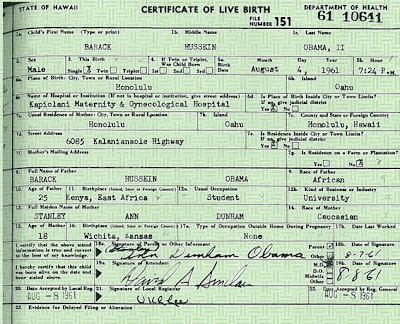 STATE OF HAWAII CERTIFICATE OF LIVE BIRTH DEPARTMENT OF HEALTH
FILE NUMBER 151 61 10641
1a. Child's First Name (Type or print) 1b. Middle Name 1c. Last Name
BARACK HUSSEIN OBAMA, II
2. Sex 3. This Birth 4. If Twin or Triplet, Was Child Born 5a. Birth Date Month Day Year 5b. Hour
Male Single X Twin Triplet 1st 2nd 3rd August 4, 1961 7:24 P.M.
6a. Place of Birth: City, Town or Rural Location 6b. Island
Honolulu Oahu
6c. Name of Hospital or Institution (If not in hospital or institution, give street address) 6d. Is Place of Birth Inside City or Town Limits? If no, give judicial district
Kapiolani Maternity & Gynecological Hospital Yes X No
7a. Usual Residence of Mother: City, Town or Rural Location 7b. Island 7c. County and State or Foreign Country
Honolulu Oahu Honolulu, Hawaii
7d. Street Address 7e. Is Residence Inside City or Town Limits? If no, give judicial district
6085 Kalanianaole Highway Yes X No
7f. Mother's Mailing Address 7g. Is Residence on a Farm or Plantation?
Yes No X
8. Full Name of Father 9. Race of Father
BARACK HUSSEIN OBAMA African
10. Age of Father 11. Birthplace (Island, State or Foreign Country) 12a. Usual Occupation 12b. Kind of Business or Industry
25 Kenya, East Africa Student University
13. Full Maiden Name of Mother 14. Race of Mother
STANLEY ANN DUNHAM Caucasian
15. Age of Mother 16. Birthplace (Island, State or Foreign Country) 17a. Type of Occupation Outside Home During Pregnancy 17b.
18 Wichita, Kansas None
I certify that the above stated information is true and correct to the best of my knowledge. 18a. Signature of Parent or Other Informant Parent Other 18b. Date of Signature
Ann Dunham Obama 8-7-61
I hereby certify that this child was born alive on the date and hour stated above. 19a. Signature of M.D. D.O. Midwife Other 19b. Date of Signature
David A Sinclair 8-8-61
20. Date Accepted by Local Reg. 21. Signature of Local Registrar 22. Date Accepted by Reg. General
AUG -8 1961 AUG -8 1961
23. Evidence for Delayed Filing or Alteration